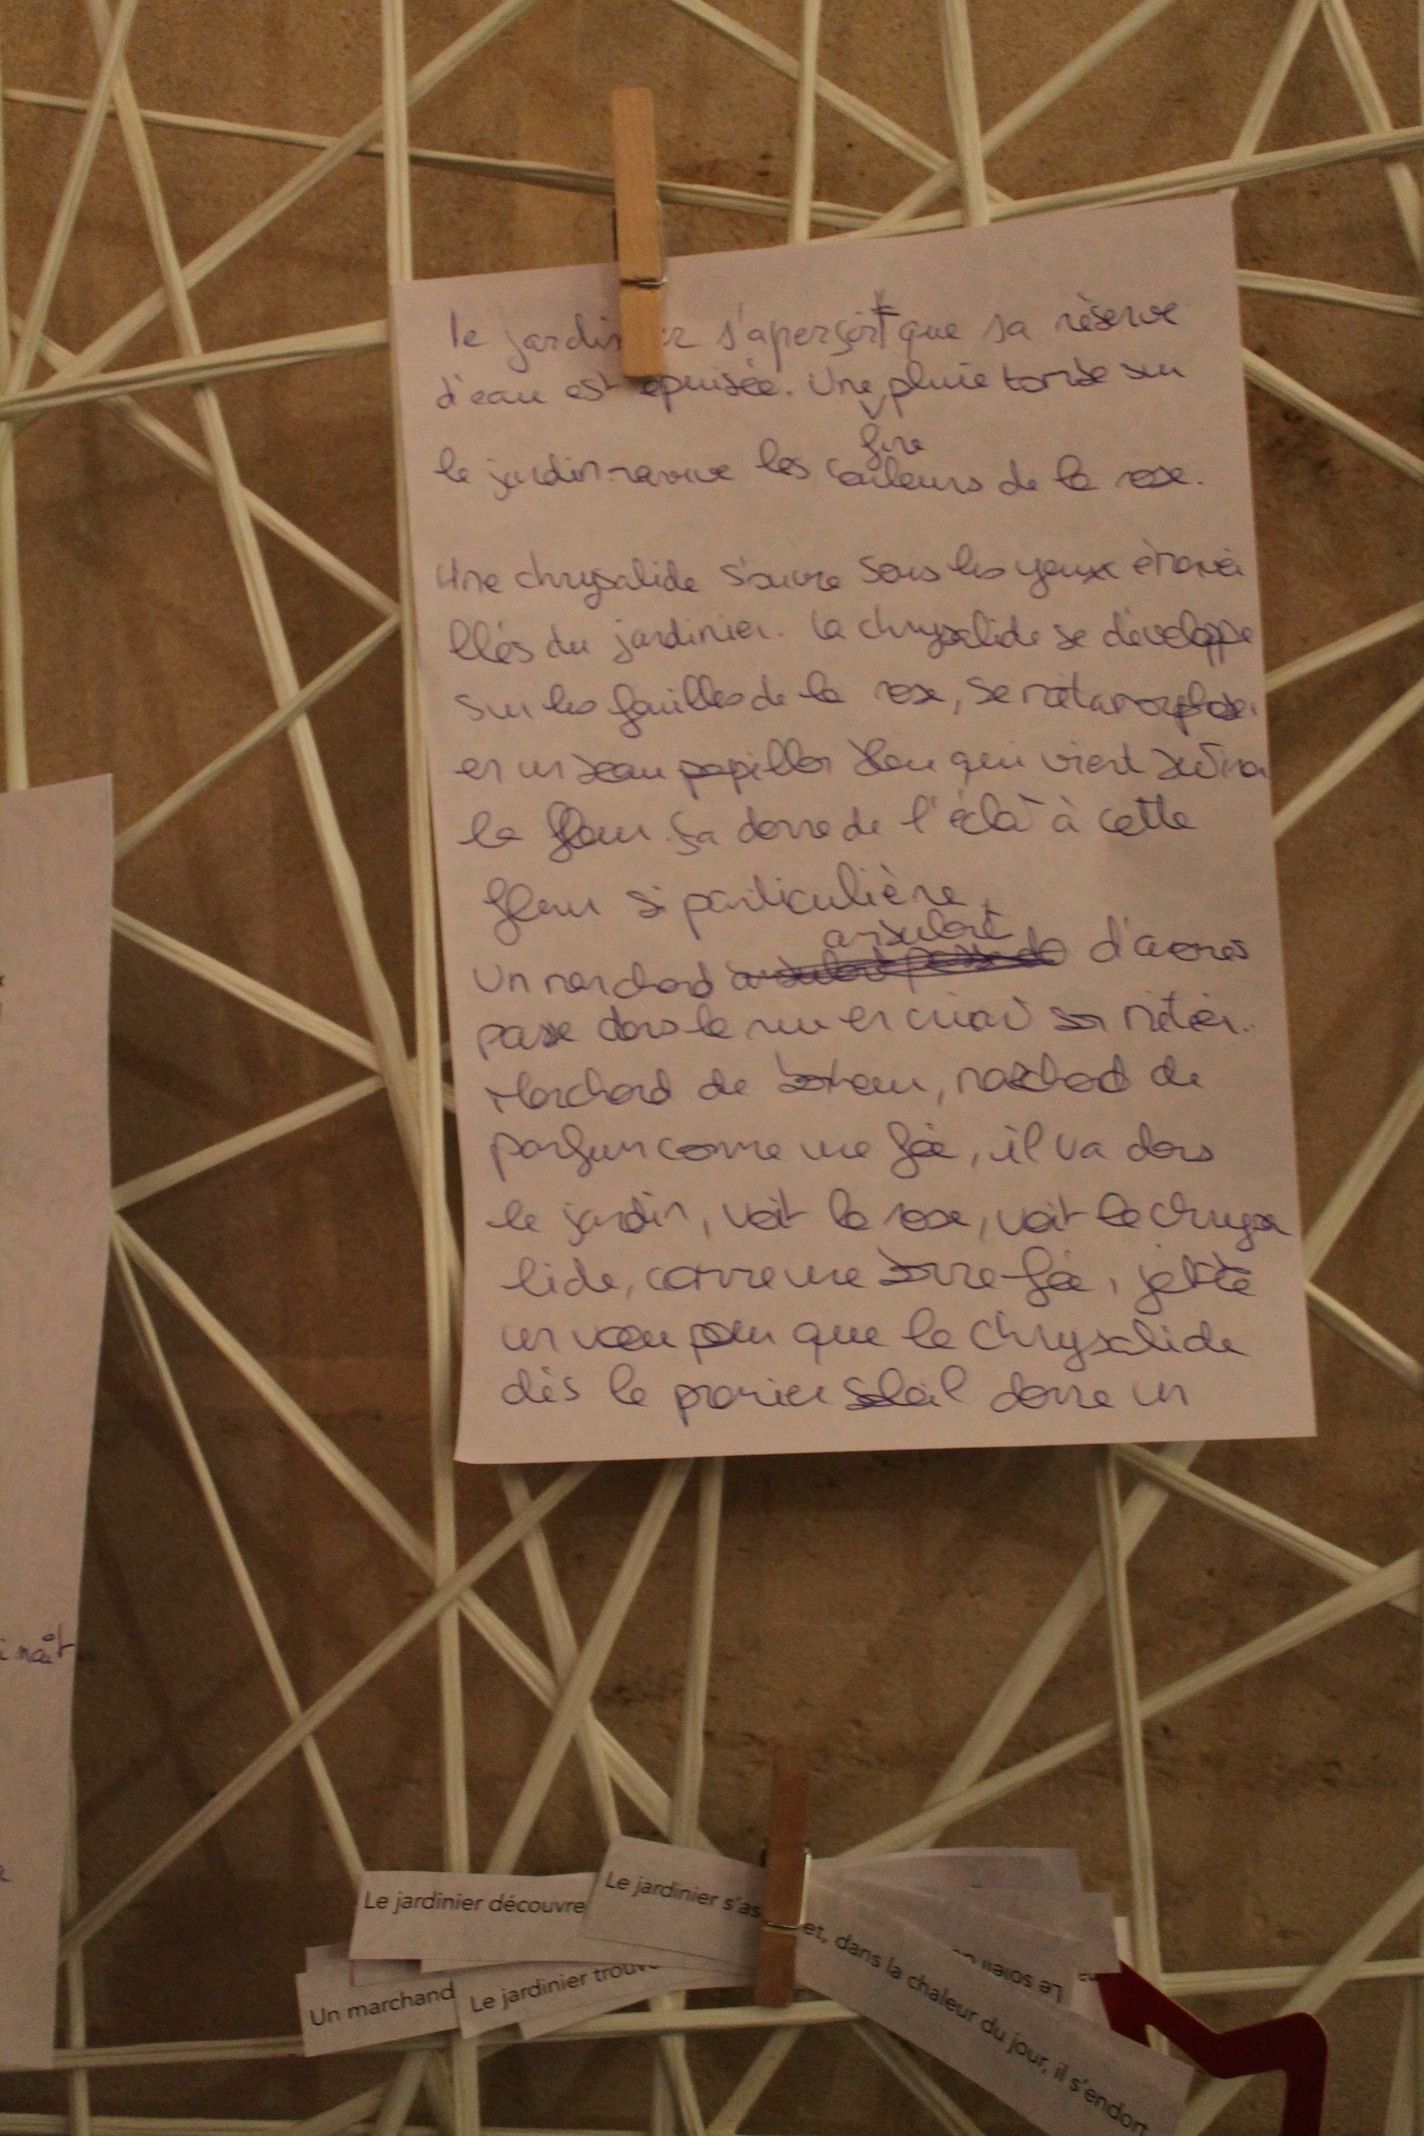 le jardinier s'aperçoit que sa réserve
d'eau est épuisée. Une fine pluie tombe sur
le jardin ravive les couleurs de la rose.
Une chrysalide s'ouvre sous les yeux émervei
llés du jardinier. la chrysalide se développe
sur les feuilles de la rose, se métamorphose
en un beau papillon bleu qui vient butiner
la fleur. ça donne de l'éclat à cette
fleur si particulière.
Un marchand ambulant d'aromes
passe dans la rue en criant son métier.
Marchand de bonheur, marchand de
parfum comme une fée, il va dans
le jardin, voit la rose, voit la chrysa
lide, comme une bonne fée, jette
un voeu pour que la chrysalide
dès le premier soleil donne un
naît
Le jardinier découvre
Le jardinier s'as
et, dans la chaleur du jour, il s'endort
Le soleil
Un marchand
Le jardinier trouve